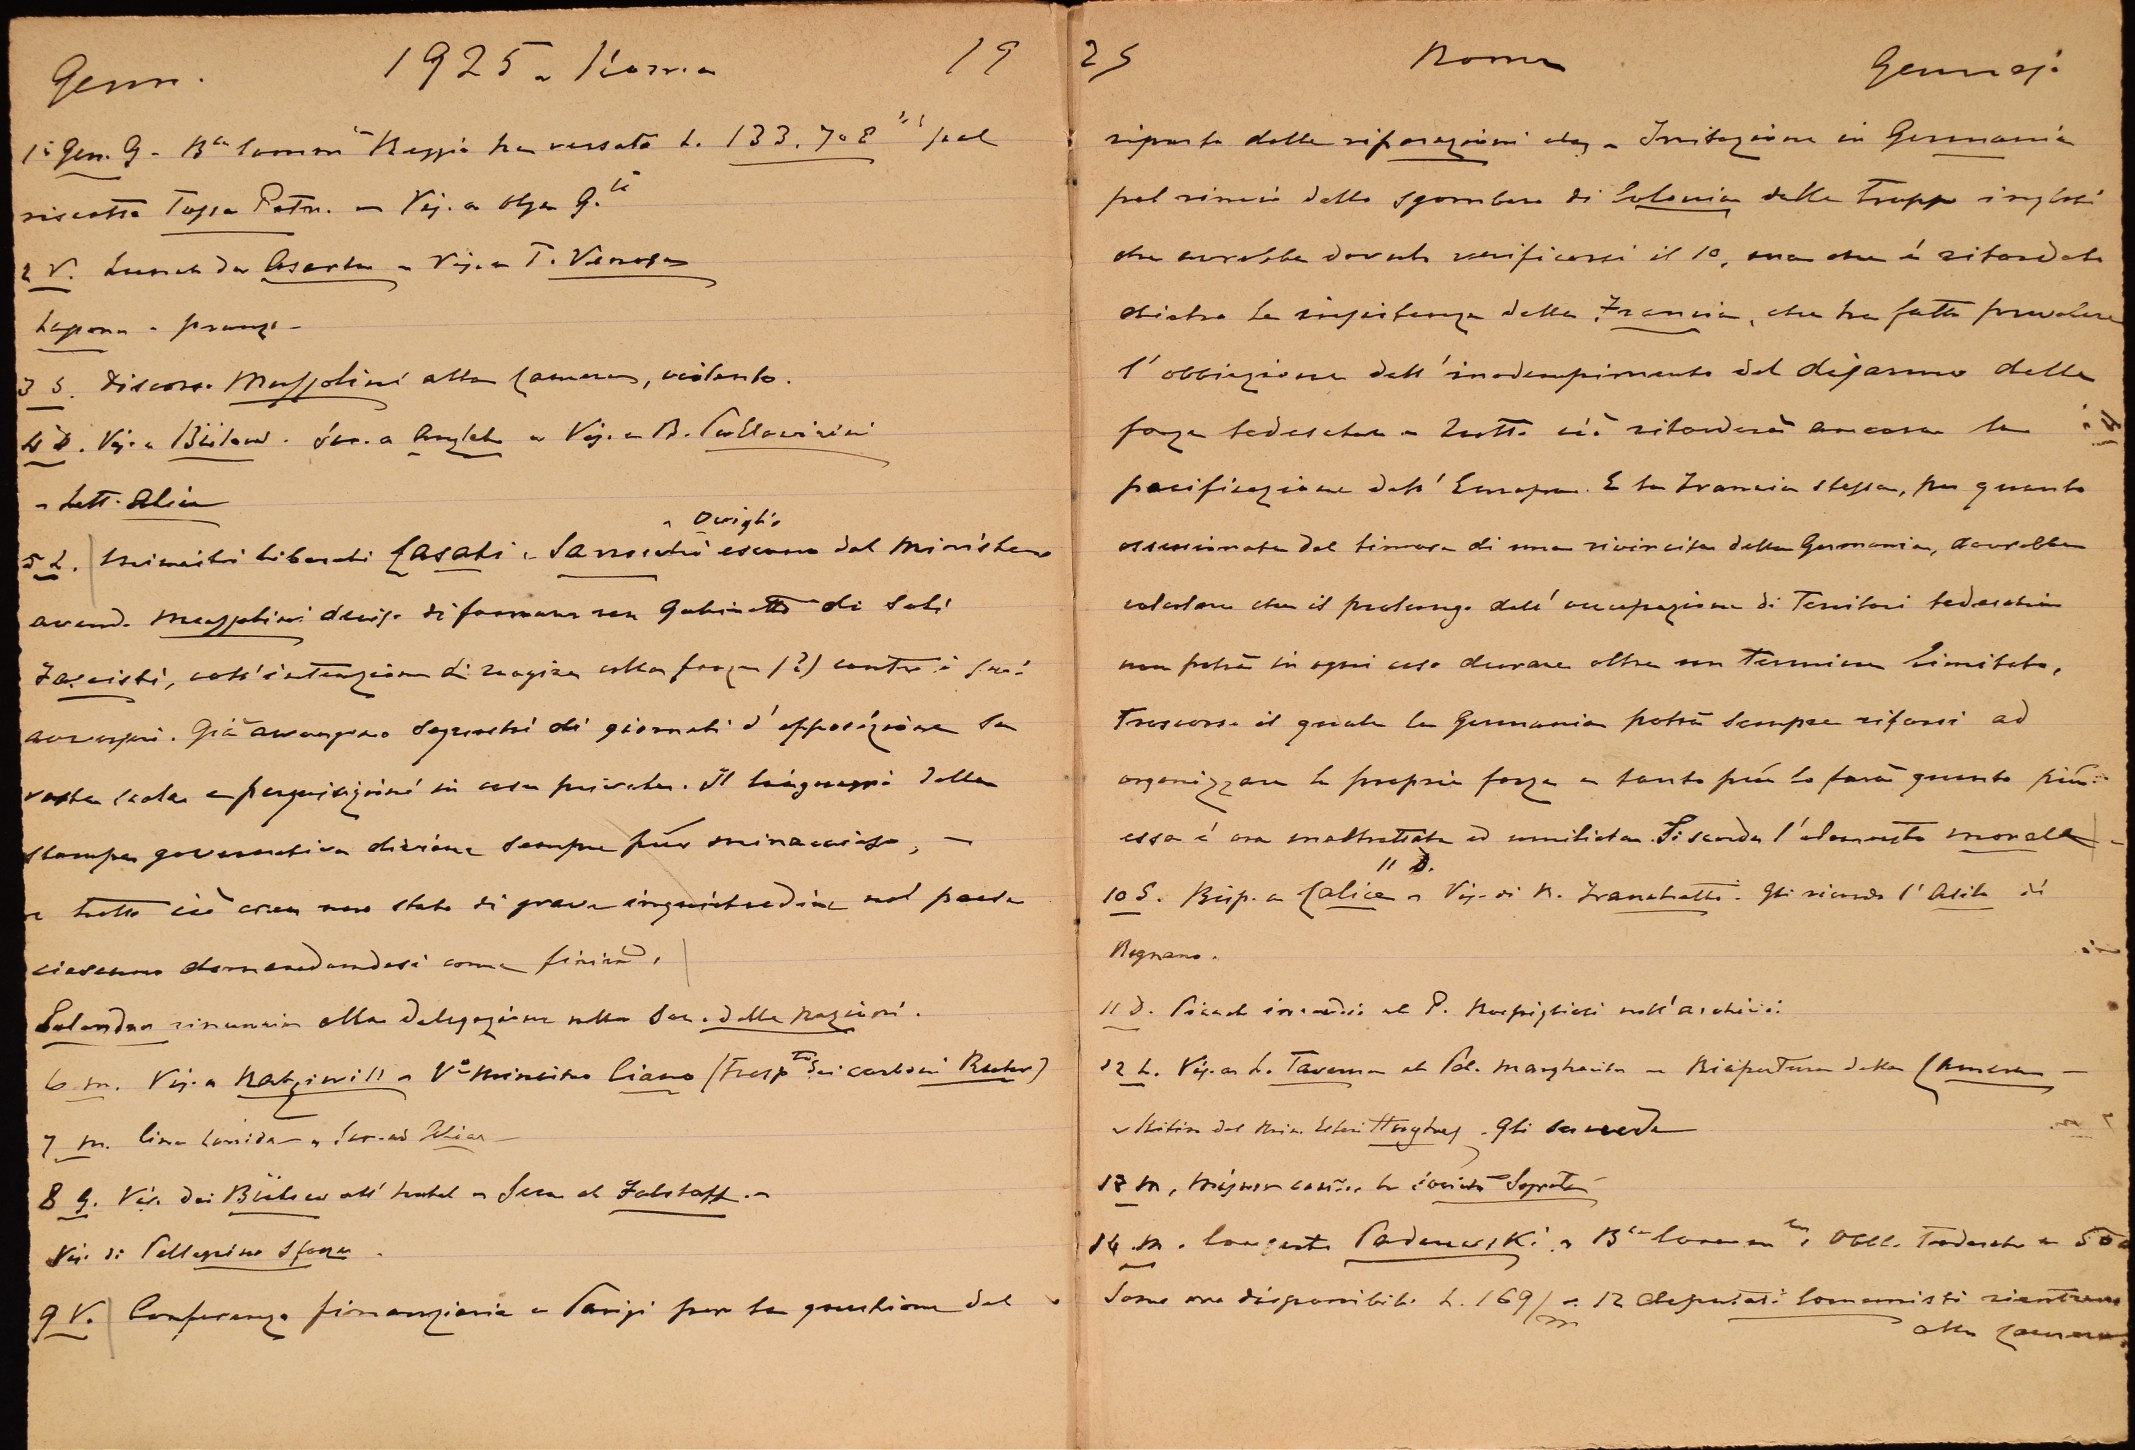 Genn. 1925 - Roma 19
1° Gen. G - Bca Comm Reggio ha versato L. 133.708 pel
riscatto Tassa Patr. - Vis. a Olga G.
2 V. Lunch da Caserta - Vis. a T. Venosa
pranzo -
3 S. Discorso Mussolini alla Camera, violento.
4 D. Vis. a Bülow. Scr. a - Vis. a B. Pallavicini
- Lett. Alice
- Oviglio
5 L. Ministri liberali Casati - Sarrocchi escono dal Ministero
avendo Mussolini deciso di formare un Gabinetto di soli
Fascisti, coll'intenzione di reagire colla forza (?) contro i suoi
avversari. Già avvengono sequestri di giornali d'opposizione su
vasta scala e perquisizioni in case private. Il linguaggio della
stampa governativa diviene sempre più minaccioso, -
e tutto ciò crea uno stato di grave inquietudine nel paese
ciascuno domandandosi come finirà.
Salandra rinuncia alla delegazione nella Soc. delle Nazioni.
6 M. Vis. a Radziwill - Ministro Ciano (Trasp. dei carboni Ruhr)
7 M. - Scr. ad Alice -
8 G. Vis. dei Bülow all'hotel - Sera al Falstaff. -
Vis. di Pellegrino Sforza.
9 V. Conferenza finanziaria a Parigi per la questione del
25 Roma Gennajo
riparto delle riparazioni - Irritazione in Germania
pel rinvio dello sgombero di Colonia dalle truppe inglesi
che avrebbe dovuto verificarsi il 10, ma che è ritardato
dietro la insistenza della Francia, che ha fatto prevalere
l'obbiezione dell'inadempimento del disarmo delle
forze tedesche - Tutto ciò ritarderà ancora la
pacificazione dell'Europa. E la Francia stessa, per quanto
ossessionata dal timore di una rivincita della Germania, dovrebbe
calcolare che il prolungo dell'occupazione di Territori tedeschi
non potrà in ogni caso durare oltre un Termine limitato,
Trascorso il quale la Germania potrà sempre rifarsi ad
organizzare le proprie forze e tanto più lo farà quanto più
essa è ora maltrattata ed umiliata. Si scorda l'elemento morale
11 D.
10 S. Risp. a Calice - Vis. di R. Franchetti. Gli ricordo l'Asilo di
Rognano.
11 D. Piccolo incendio al P. Rospigliosi nell'archivio
12 L. Vis. a L. Taverna al Pal. Margherita - Riapertura della Camera -
- Ritiro del Min. Esteri Hughes. Gli succede
13 M.
14 M. Concerto Paderewski - Bca Comm Obbl. Tedesche a
Sono ora disponibili L. 169/m - 12 deputati Comunisti rientrano
alla Camera